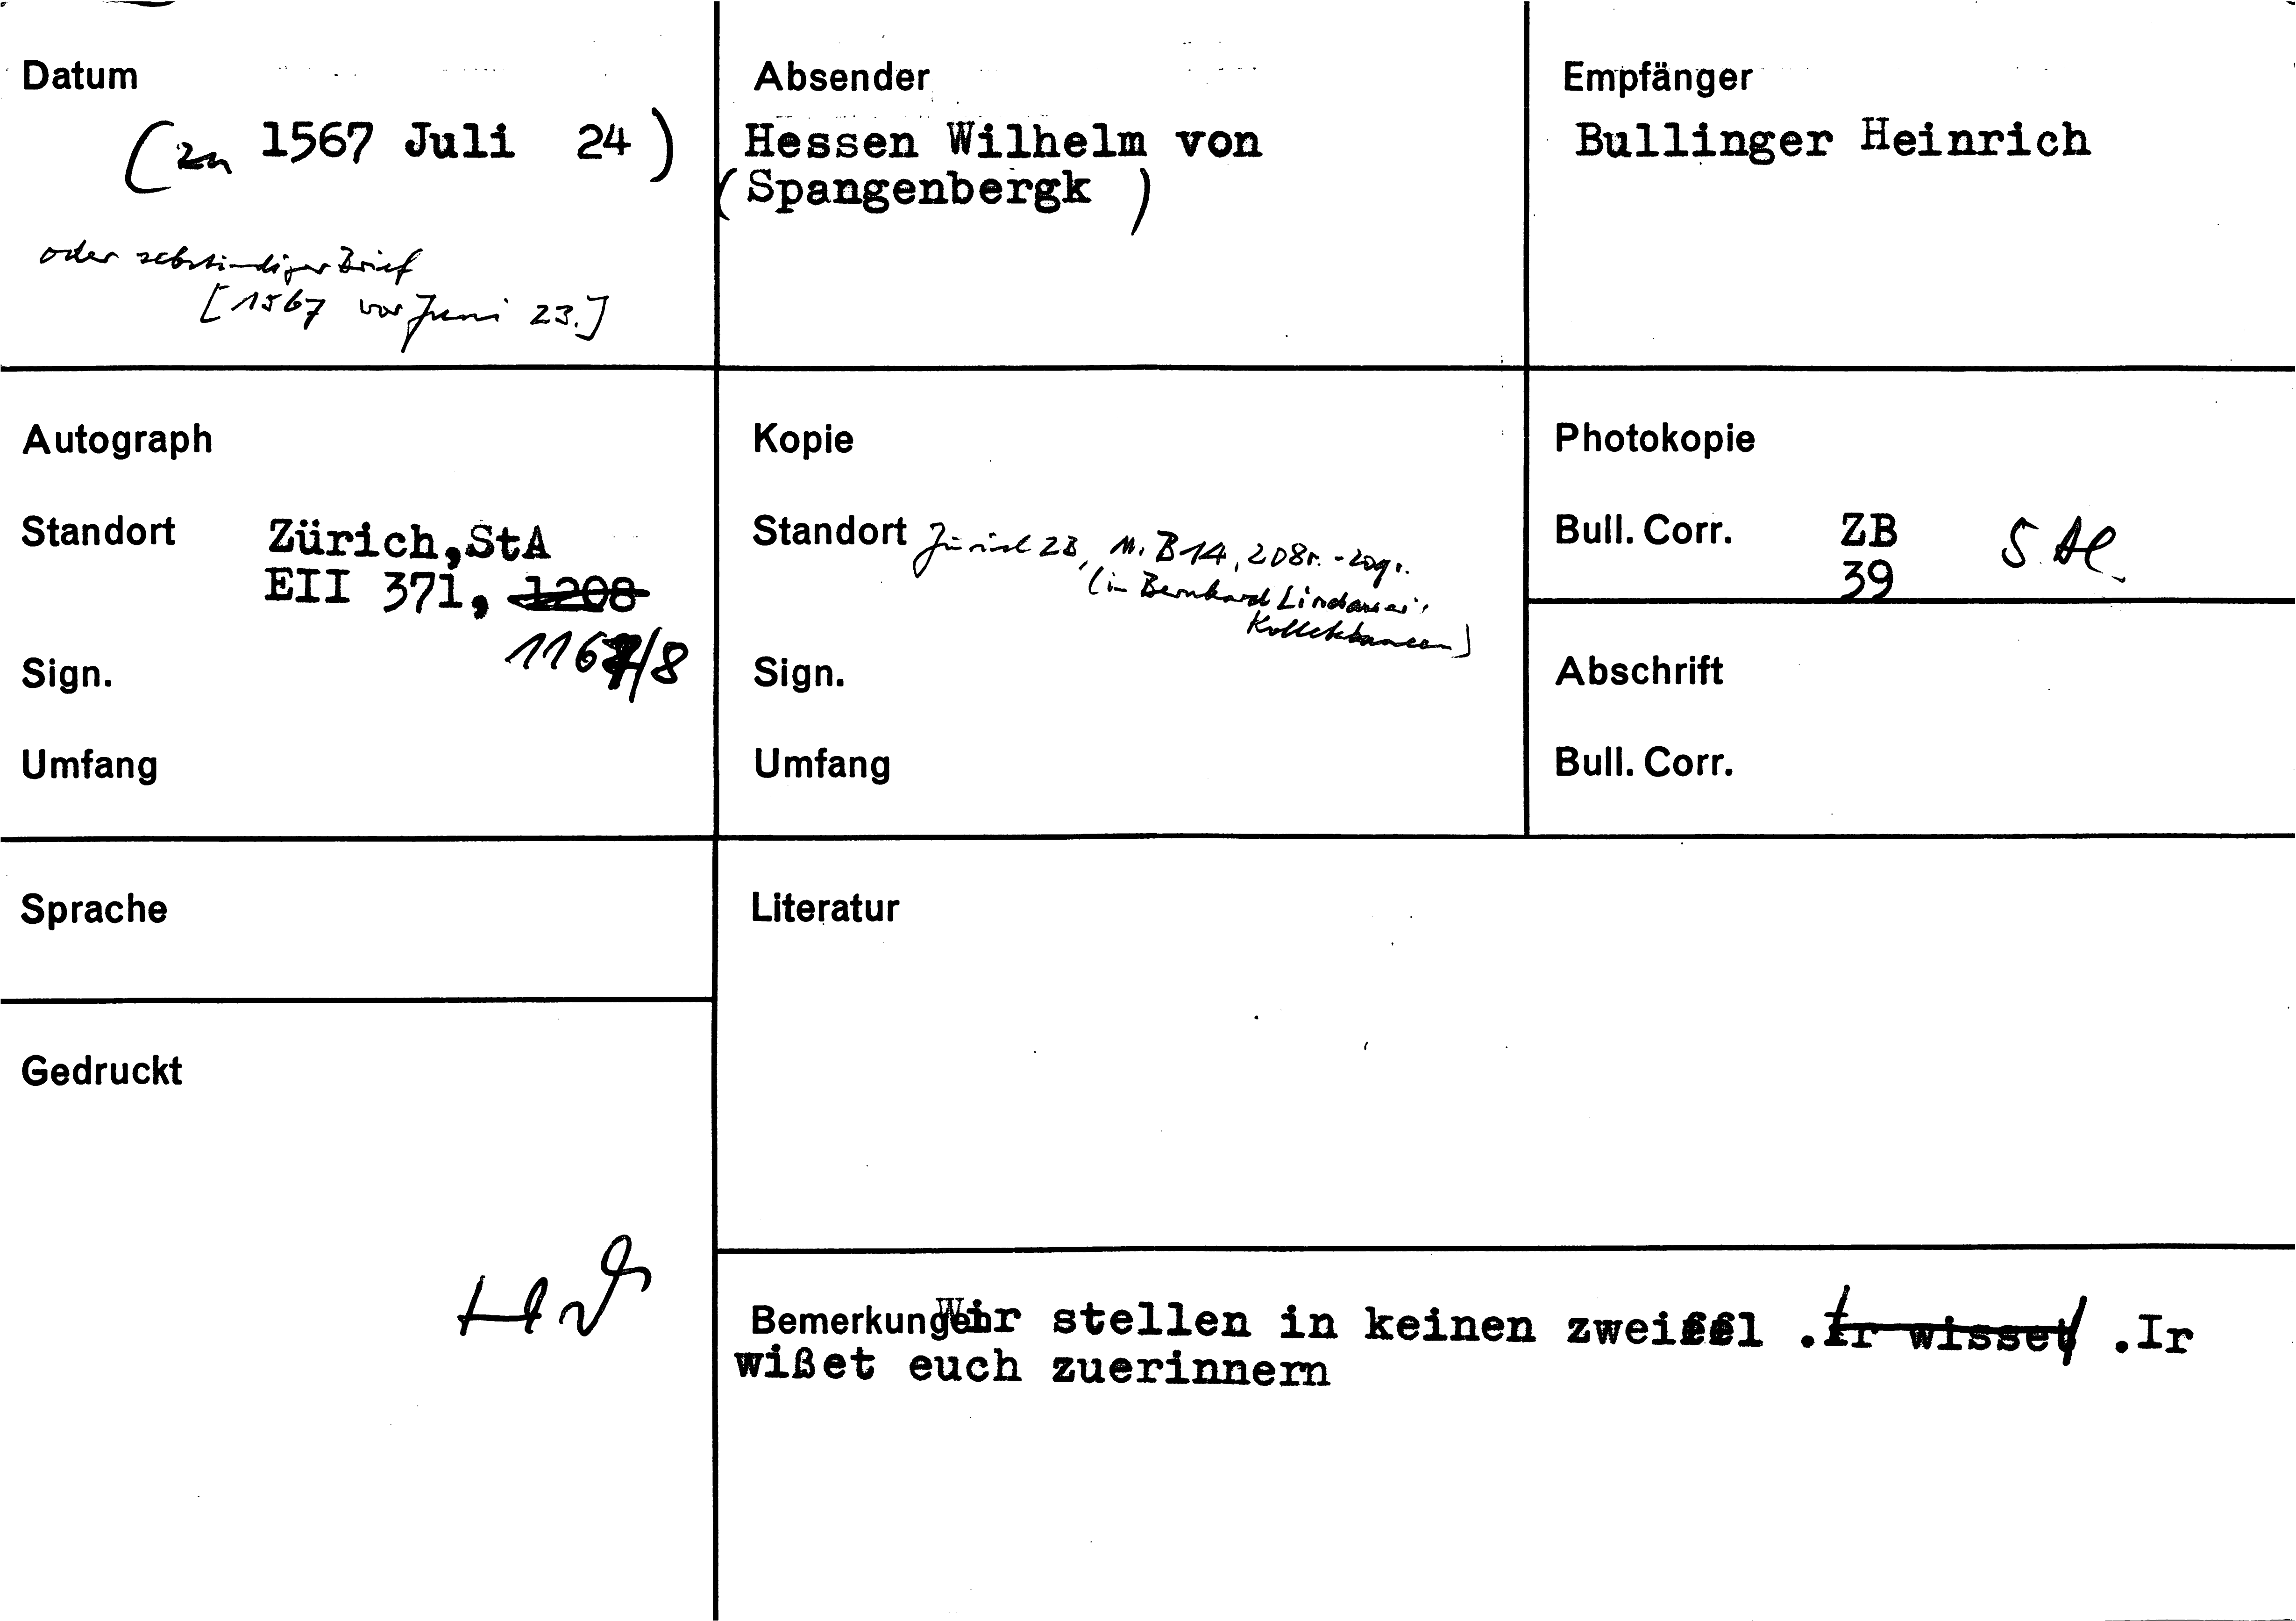 Datum
(zu 1567 Juli 24)
oder selbständiger Brief
[1567 vor Juni 23.]
Absender
Hessen Wilhelm von
(Spangenbergk )
Empfänger
Bullinger Heinrich
Autograph
Standort Zürich,StA
EII 371, 1208
/8
Sign.
Umfang
Kopie
Standort Zürich ZB, Ms. B 14, 208r.-209r.
(in Bernhard Lindauers
Kollektaneen)
Sign.
Umfang
Photokopie
Bull. Corr. ZB
39
Abschrift
Bull. Corr.
Sprache
Literatur
Gedruckt
Bemerkungen Wir stellen in keinen zweiffl .Ir wisset .Ir
wißet euch zuerinnern